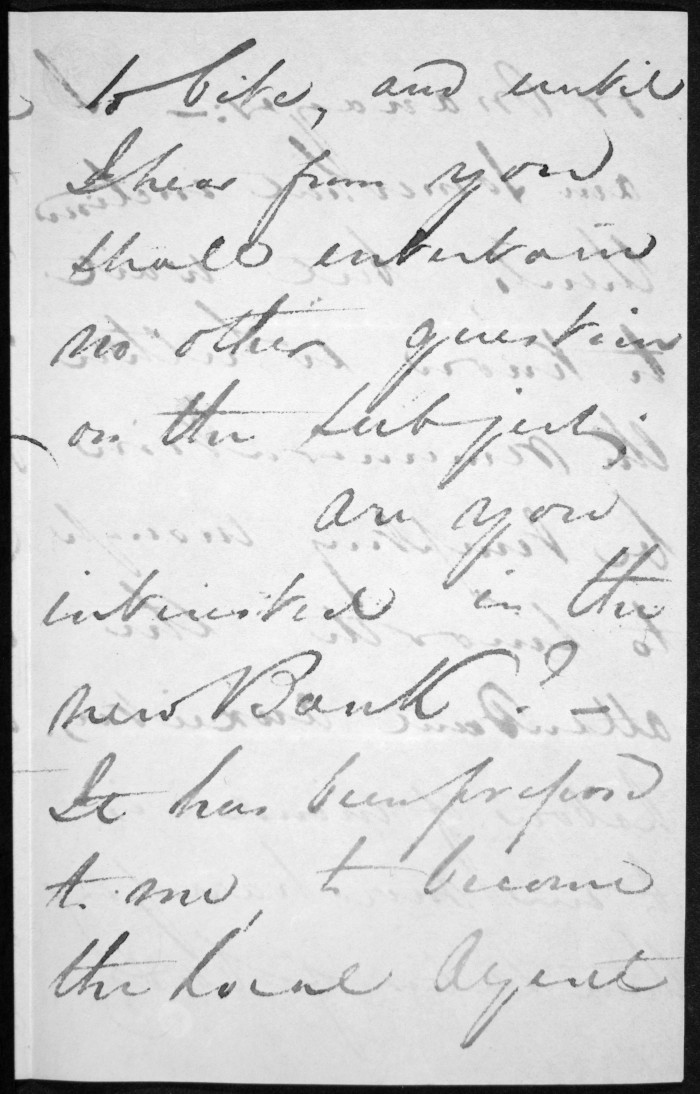 to bite, and until
I hear from you
shall entertain
no other question
on the subject,
are you
interested in the
new Bank? -
It has been proposed
to me, to become
the Local Agent